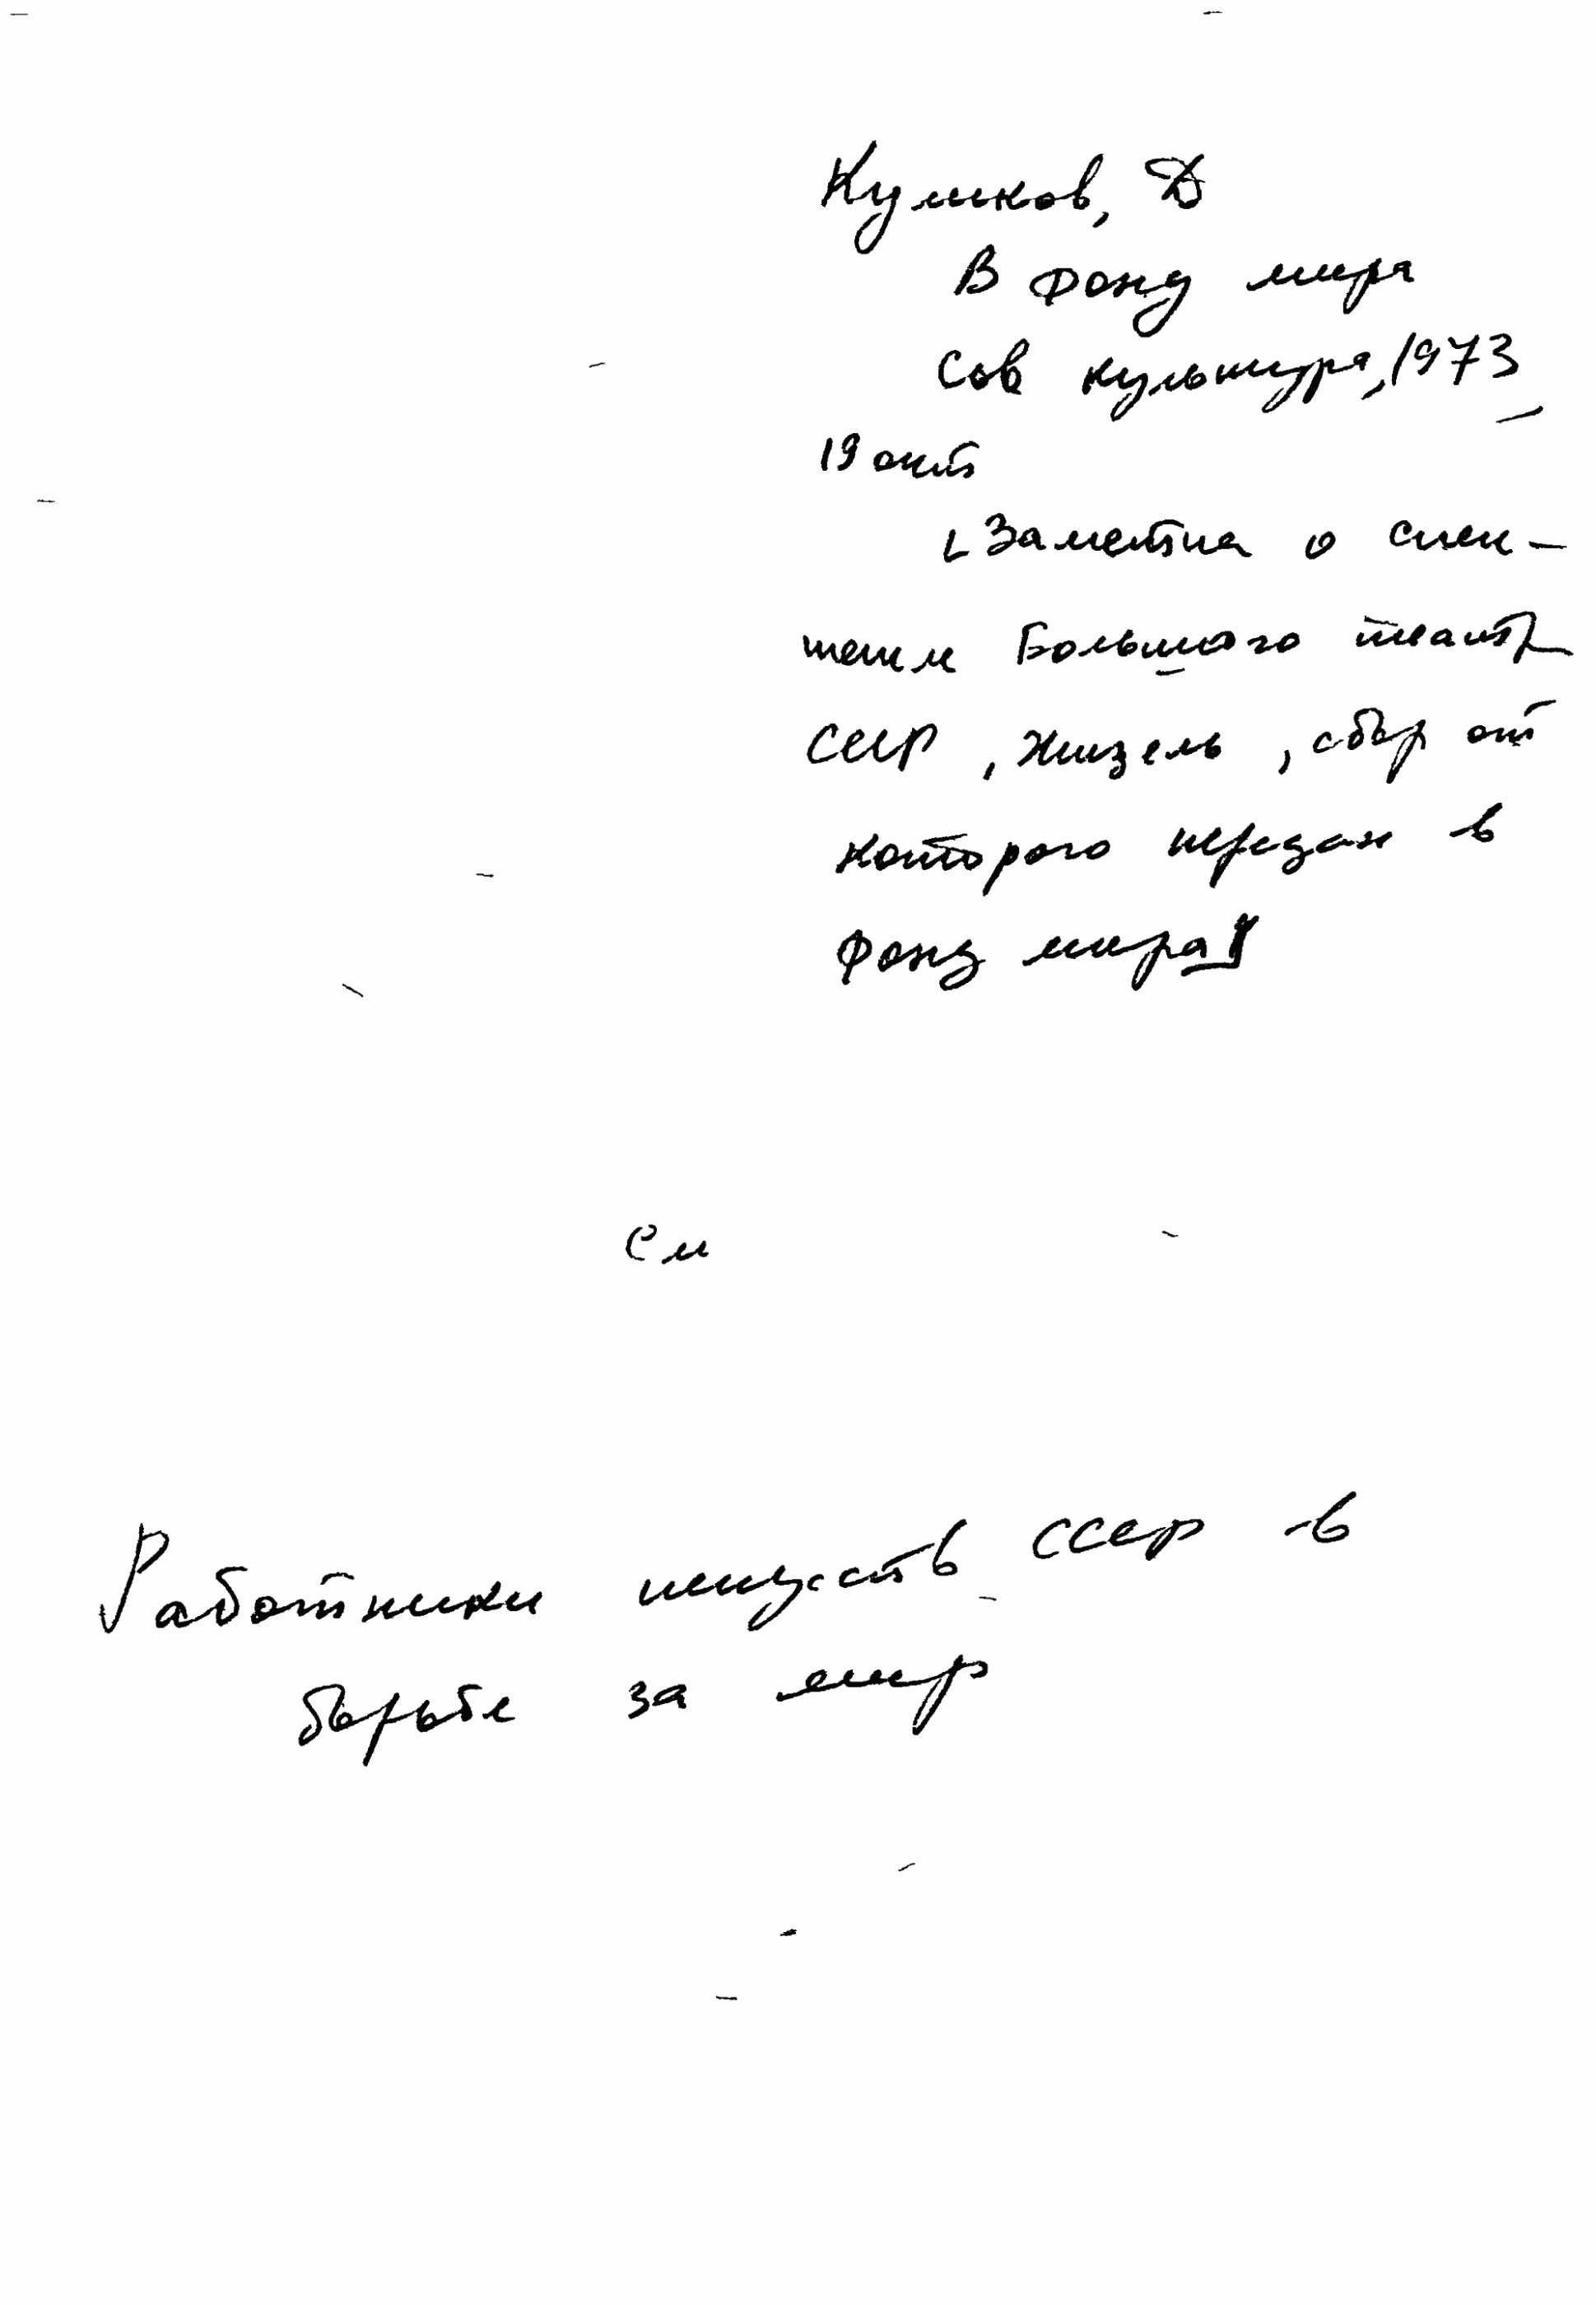 Куликов, Д
В Фонд мира
Сов культура, 1973,
19 окт
[Заметка о спек-
такле Большого театр
СССР, Жизель, сбор от
которого передан в
Фонд мира]
См
Работники искусств СССР в
борьбе за мир